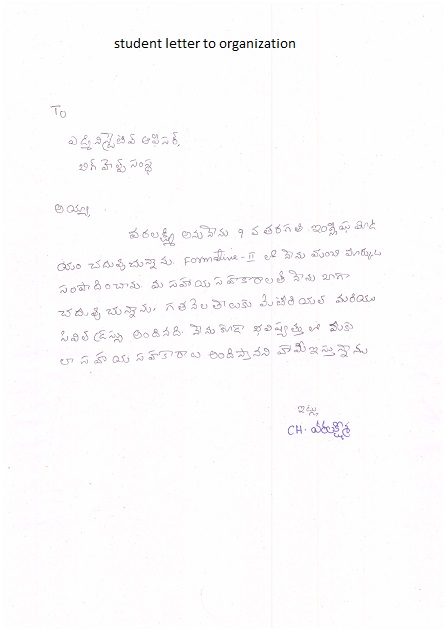 student letter to organization
To
ఎడ్మినిస్ట్రేటివ్ ఆఫీసర్,
బిగ్ హెల్ప్ సంస్థ
అయ్యా
వరలక్ష్మి అను నేను 9 వ తరగతి ఇంగ్లీషు మీడి
యం చదువుచున్నాను. Formative-II లో నేను మంచి మార్కులు
సంపాదించాను. మీ సహాయ సహకారాలతో నేను బాగా
చదువుచున్నాను. గత నెల తాలుకు మెటీరియల్ మరియు
సివిల్ డ్రస్సు అందినది. నేను కూడా భవిష్యత్తు లో మీకు
లా సహాయ సహకారాలు అందిస్తానని హామీ ఇస్తున్నాను
ఇట్లు
CH. వరలక్ష్మి